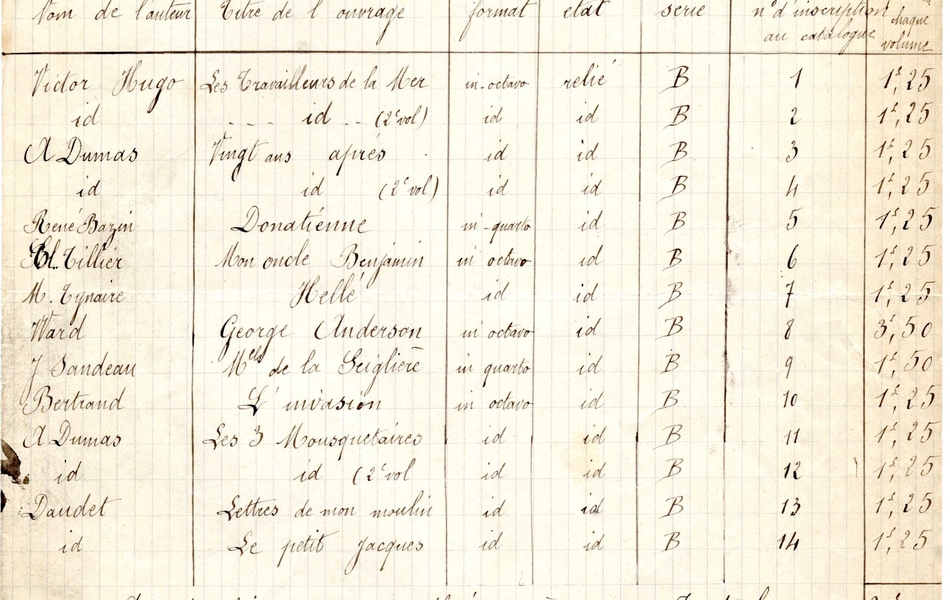 Nom de l'auteur Titre de l'ouvrage format etat serie n° d'inscription
au catalogue chaque
volume
Victor Hugo Les Travailleurs de la Mer in-octavo relié B 1 1f,25
id - - - id - - (2e vol) id id B 2 1f,25
A Dumas Vingt ans après id id B 3 1f,25
id id (2e vol) id id B 4 1f,25
René Bazin Donatienne in-quarto id B 5 1f,25
Cl. Tillier Mon oncle Benjamin in octavo id B 6 1f,25
M. Tynaire Hellé id id B 7 1f,25
Ward George Anderson in octavo id B 8 3f,50
J Sandeau Melle de la Seiglière in quarto id B 9 1f,50
Bertrand L'invasion in octavo id B 10 1f,25
A Dumas Les 3 Mousquetaires id id B 11 1f,25
id id (2e vol id id B 12 1f,25
Daudet Lettres de mon moulin id id B 13 1f,25
id Le petit Jacques id id B 14 1f,25